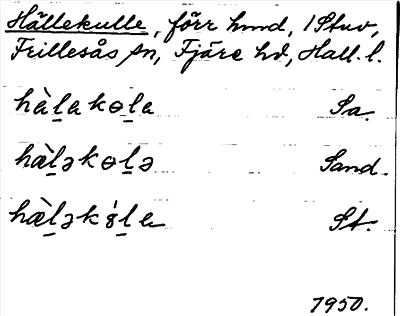 Hällekulle, förr hmd, 1 Stuv,
Frillesås sn, Fjäre hd, Hall. l.
hàl̠akɵl̠a Sa.
hæ̀l̠əkɵl̠ə Sand.
hæ̀l̠ək l̠e St.
1950.